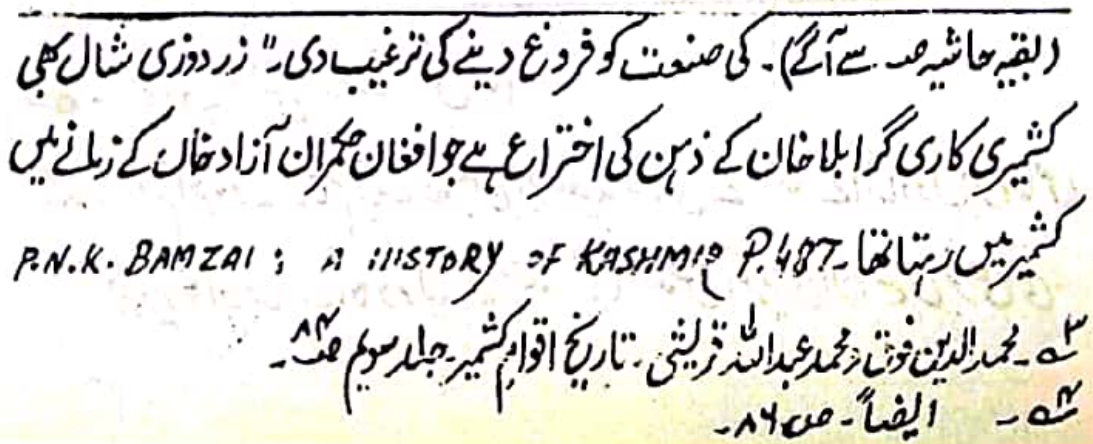 (بقیہ حاشیہ صہ سے آگے)۔ کی صنعت کو فروغ دینے کی ترغیب دی۔" زر دوزی شال بھی
کشمیری کاری گر ابلا خان کے ذہن کی اختراع ہے جو افغان حکمران آزاد خان کے زمانے میں
کشمیر میں رہتا تھا۔ P.N.K. BAMZAI ; A HISTORY OF KASHMIR P.487
۳؎۔ محمد الدین فوق و محمد عبداللہ قریشی۔ تاریخ اقوام کشمیر۔ جلد سویم
۴؎۔ ایضاً۔ ص ۸۶۔